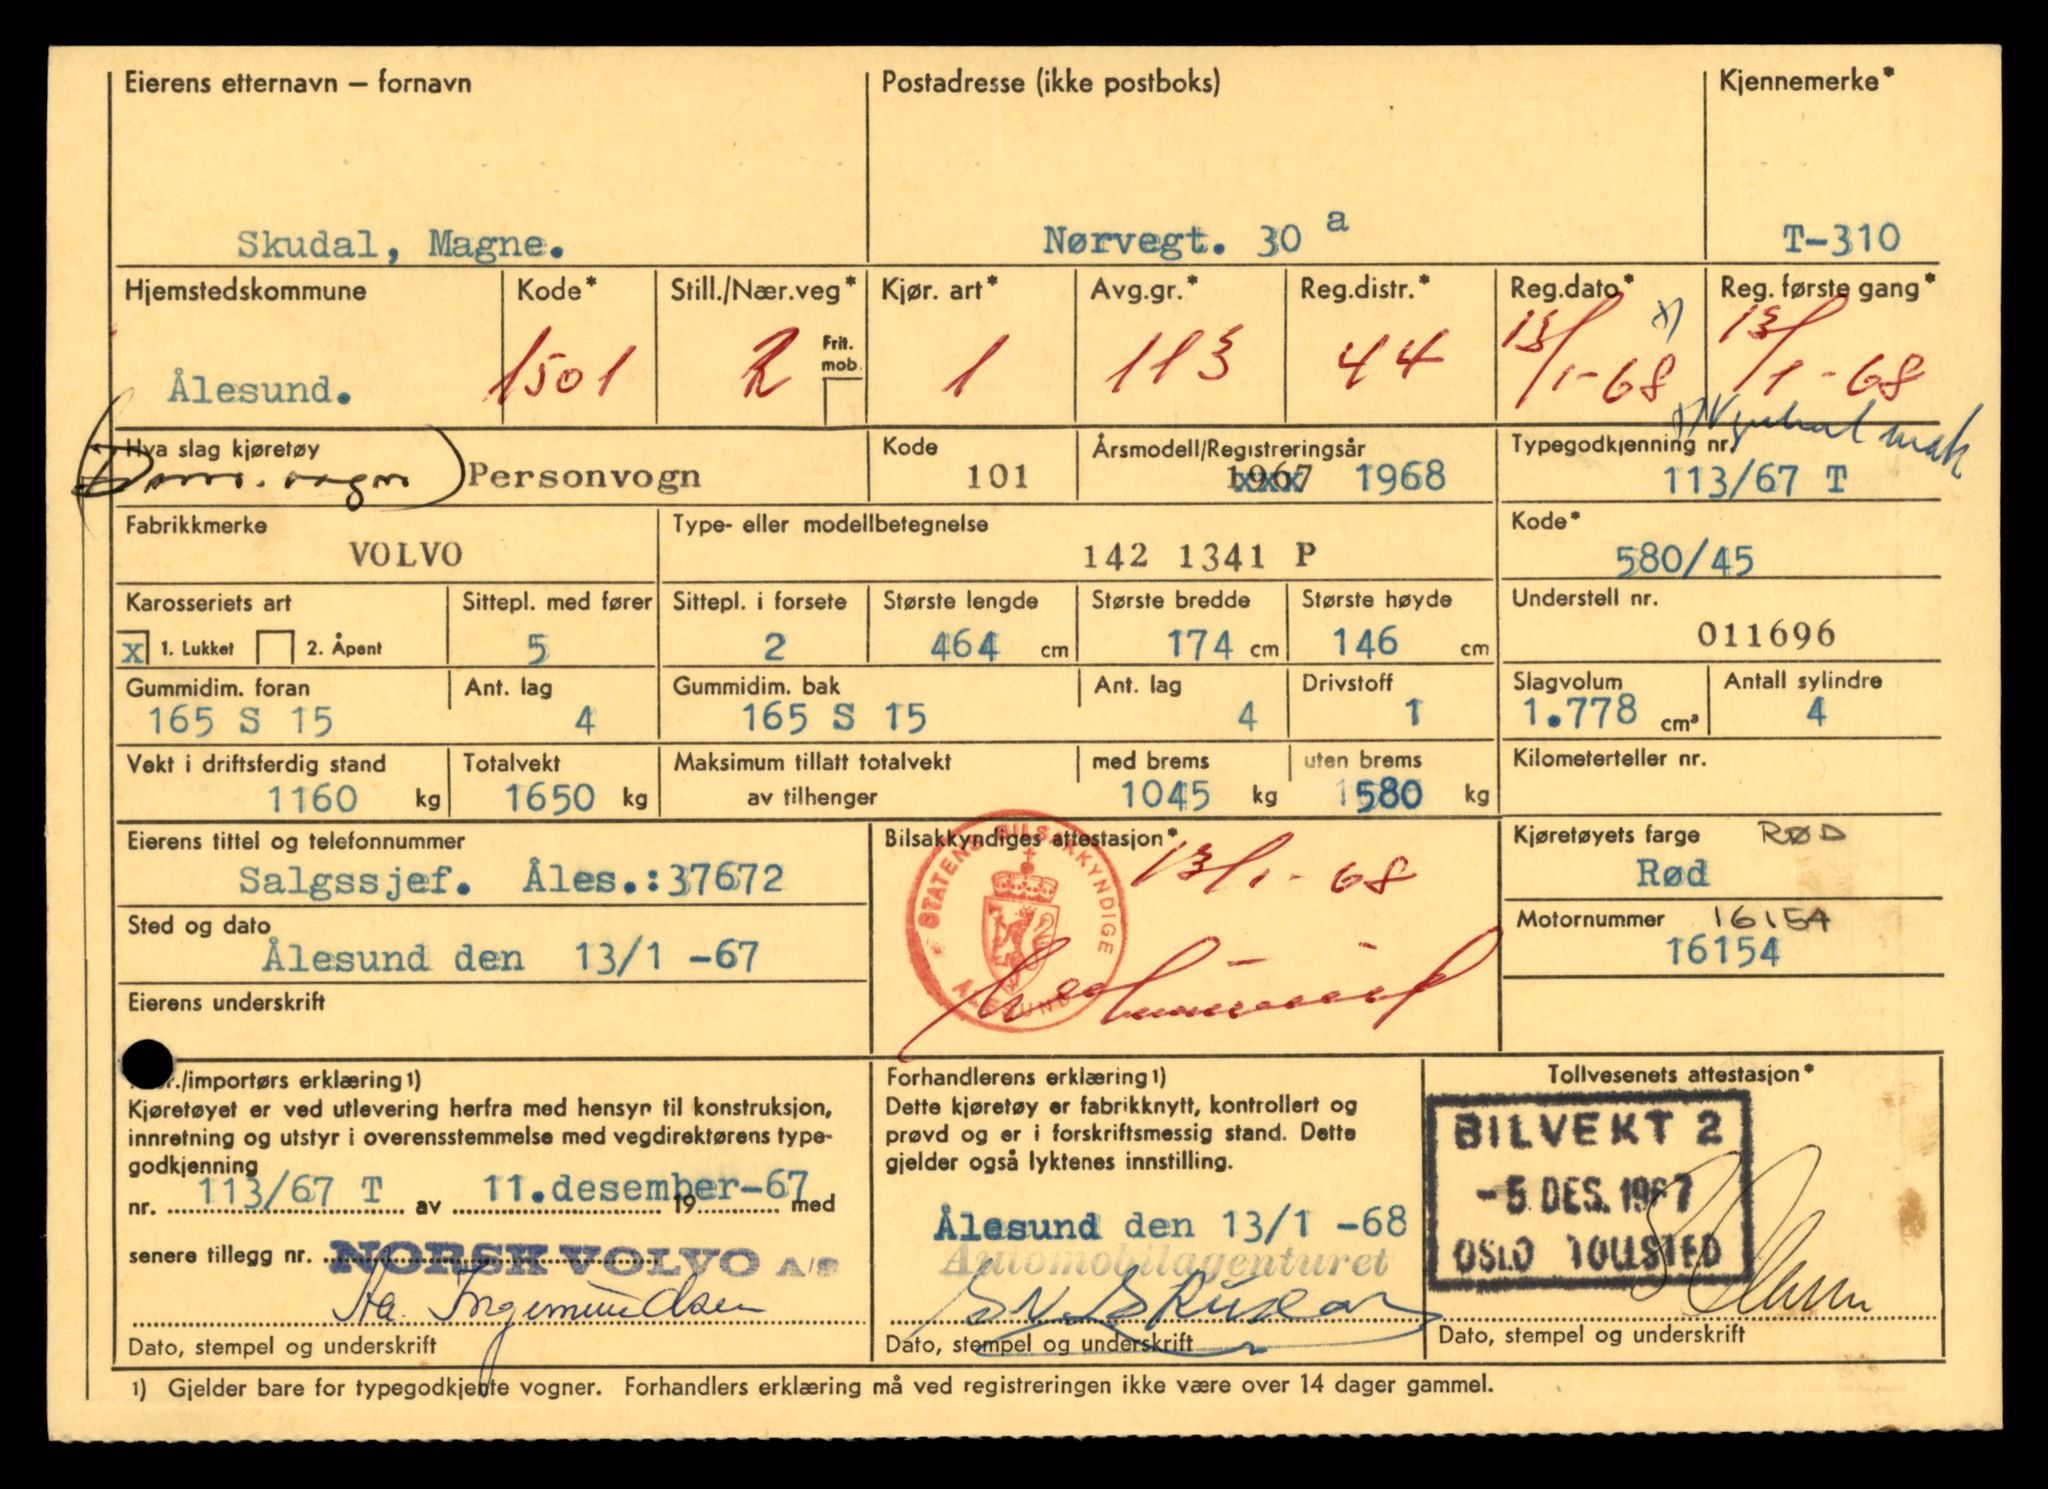 Eierens etternavn — fornavn Postadresse (ikke postboks) Kjennemerke*
Skudal, Magne. Nørvegt. 30 a T-310
Hjemstedskommune Kode* Still./Nær.veg* Kjør. art* Avg.gr.* Reg.distr.* Reg.dato* x) Reg. første gang*
Frit. mob.
Ålesund. 1501 2 1 113 44 13/1-68 13/1-68
Hva slag kjøretøy Kode Årsmodell/Registreringsår Typegodkjenning nr.
Pers. vogn) Personvogn 101 1967 xxx 1968 113/67 T
Fabrikkmerke Type- eller modellbetegnelse Kode*
VOLVO 142 1341 P 580/45
Karosseriets art Sittepl. med fører Sittepl. i forsete Største lengde Største bredde Største høyde Understell nr.
x 1. Lukket 2. Åpent 5 2 464 cm 174 cm 146 cm 011696
Gummidim. foran Ant. lag Gummidim. bak Ant. lag Drivstoff Slagvolum Antall sylindre
165 S 15 4 165 S 15 4 1 1.778 cm³ 4
Vekt i driftsferdig stand Totalvekt Maksimum tillatt totalvekt med brems uten brems Kilometerteller nr.
1160 kg 1650 kg av tilhenger 1045 kg 580 kg
Eierens tittel og telefonnummer Bilsakkyndiges attestasjon* Kjøretøyets farge RØD
Salgssjef. Åles.:37672 13/1-68 Rød
STATENS BILSAKKYNDIGE ÅLESUND
Sted og dato Motornummer 16154
Ålesund den 13/1 -67 16154
Eierens underskrift
r./importørs erklæring1) Forhandlerens erklæring1) Tollvesenets attestasjon*
Kjøretøyet er ved utlevering herfra med hensyn til konstruksjon,
innretning og utstyr i overensstemmelse med vegdirektørens type-
godkjenning
nr. 113/67 T av 11.desember-67 19 med
senere tillegg nr. NORSK VOLVO A/S
Aa. Ingemundsen
Dato, stempel og underskrift
Dette kjøretøy er fabrikknytt, kontrollert og
prøvd og er i forskriftsmessig stand. Dette
gjelder også lyktenes innstilling.
Ålesund den 13/1 -68
Automobilagenturet
Dato, stempel og underskrift
BILVEKT 2
-5 DES. 1967
OSLO TOLLSTED
Dato, stempel og underskrift
1) Gjelder bare for typegodkjente vogner. Forhandlers erklæring må ved registreringen ikke være over 14 dager gammel.